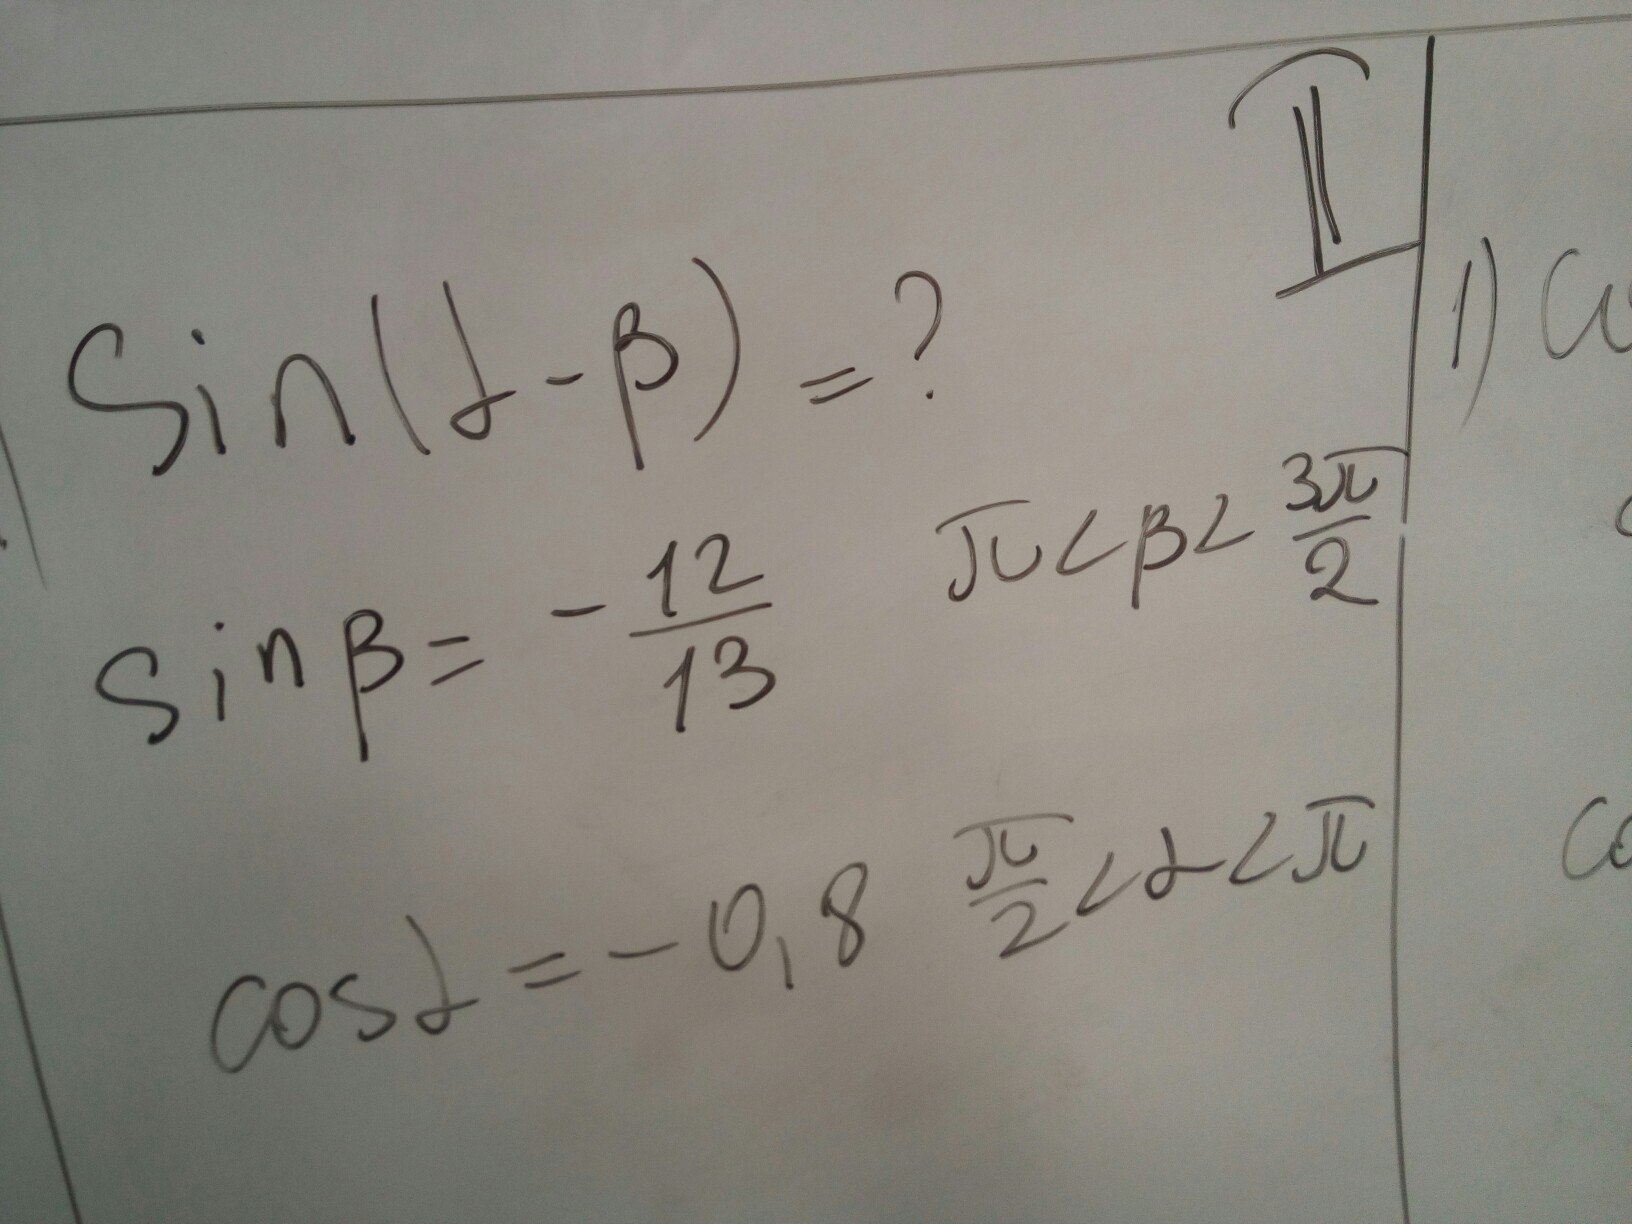 II
Sin(α-β)=?
sin β = -12/13 π<β<3π/2
cosα = -0,8 π/2<α<π
1)